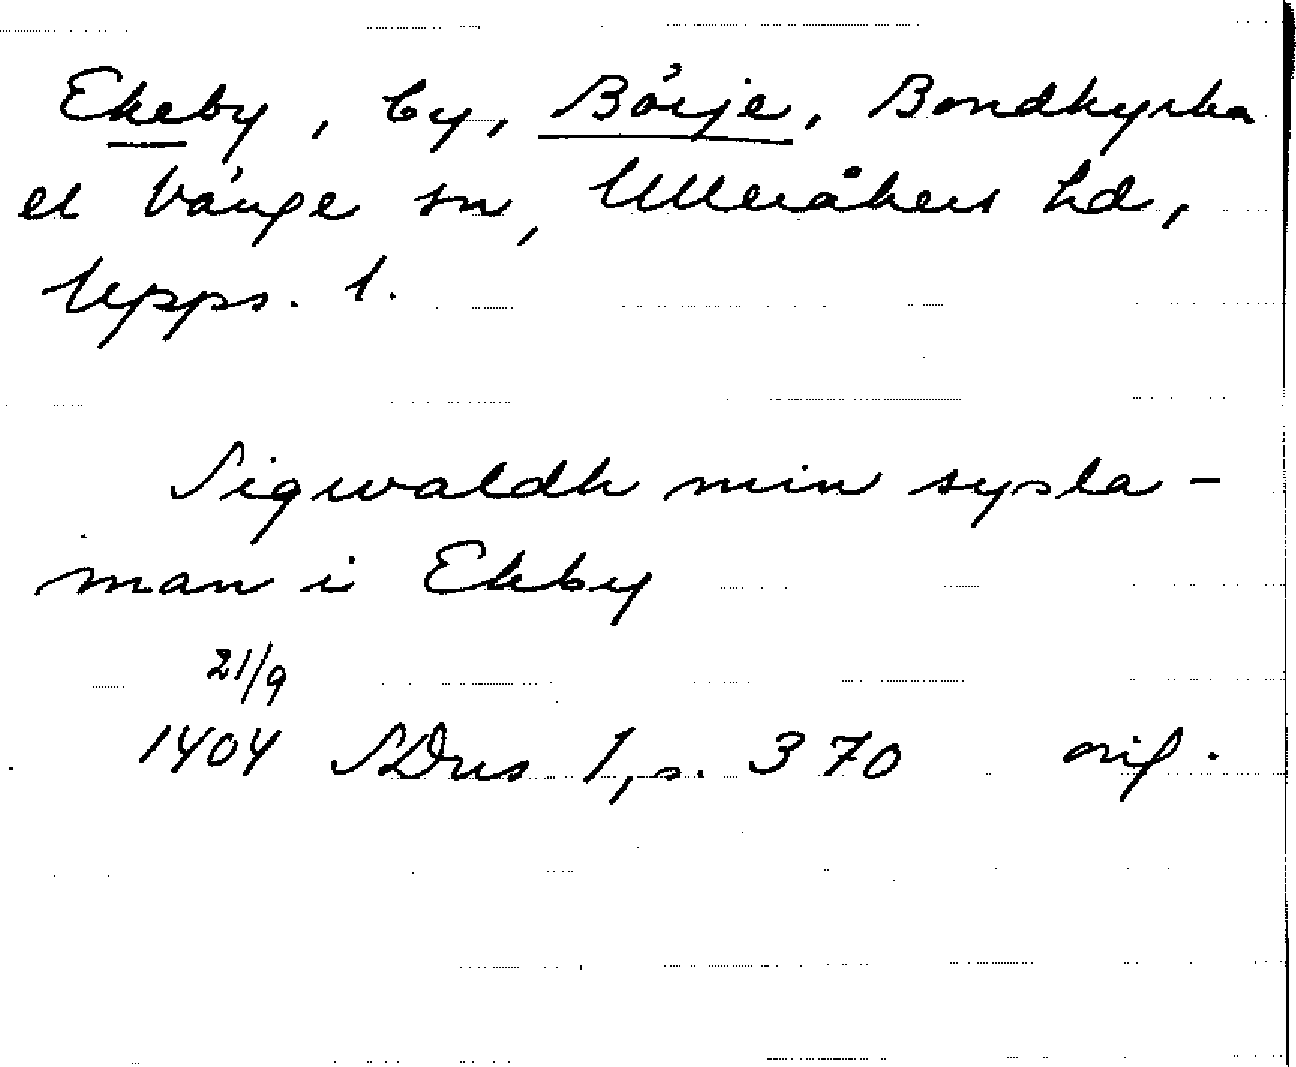 Ekeby, by, Börje, Bondkyrka
el Vänge sn, Ulleråkers hd,
Upps. l.
Sigwaldh min sysla-
man i Ekby
21/9
1404 SDns 1, s. 370 orig.